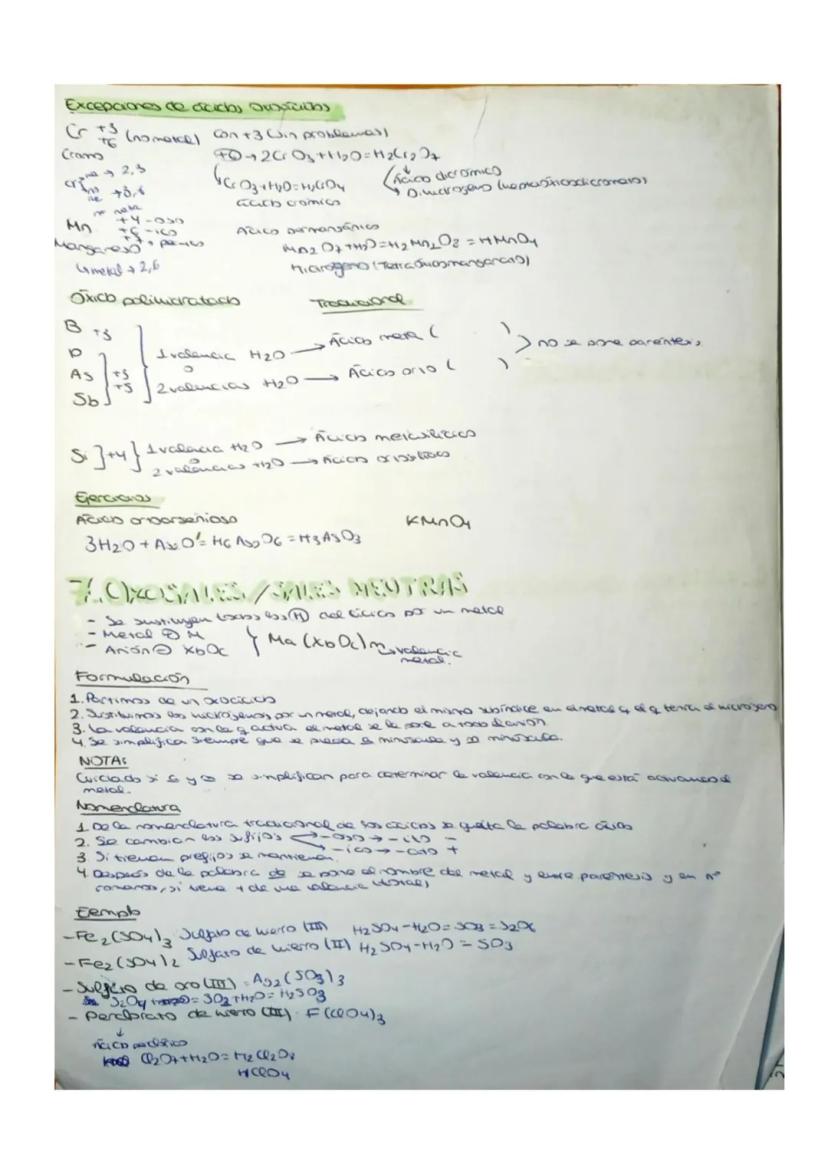 Excepciones de ácidos oxoácidos
Cr +3 +6 (no metal) con +3 (sin problemas)
Cromo +6 → 2CrO3+H2O=H2Cr2O7
Ácido dicrómico
CrO3+H2O=H2CrO4
Dihidrógeno (heptaoxidodicromato)
ácido crómico
Cr me → 2,3
no me → 3,6
no metal
Mn +4 -oso
+6 -ico
+7 per-ico
Manganeso
Ácido permangánico
Mn2O7+H2O=H2Mn2O8=HMnO4
Hidrógeno (Tetraoxidomanganato)
metal → 2,3
Óxido polihidratado Tradicional
B +3
P
As +3 +5
Sb
1 valencia H2O → Ácido meta ( )
o
2 valencias H2O → Ácido orto ( )
no se pone paréntesis
Si ] +4 } 1 valencia H2O → Ácido metasilícico
o
2 valencias H2O → Ácido ortosilícico
Ejercicios
Ácido ortoarsenioso KMnO4
3H2O + As2O = H6As2O6 = H3AsO3
7. OXOSALES / SALES NEUTRAS
- Se sustituyen todos los (H) del ácido por un metal
- Metal ⊕ M
- Anión ⊖ XbOc } Ma(XbOc)m → valencia metal.
Formulación
1. Partimos de un oxoácido
2. Sustituimos los hidrógenos por un metal, dejando el mismo subíndice en el metal q el q tenía el hidrógeno
3. La valencia con la q actúa el metal se le pone a todo el anión.
4. Se simplifica siempre que se pueda a minúscula y m minúscula.
NOTA:
Cuidado si a y m se simplifican para determinar la valencia con la que está actuando el
metal.
Nomenclatura
1. De la nomenclatura tradicional de los ácidos se quita la palabra ácido
2. Se cambian los sufijos -oso → -ito -
-ico → -ato +
3 Si tienen prefijos se mantienen.
4 Después de la palabra de se pone el nombre del metal y entre paréntesis y en nº
romanos, si tiene + de una valencia
Ejemplo
- Fe2(SO4)3 Sulfato de hierro (III) H2SO4-H2O=SO3=S2O6
- Fe2(SO4)2 Sulfato de hierro (II) H2SO4-H2O=SO3
- Sulfito de oro (III) = Au2(SO3)3
S2O4 = SO2+H2O=H2SO3
- Perclorato de hierro (III) · F(ClO4)3
↓
Ácido perclórico
Cl2O7+H2O=H2Cl2O8
HClO4